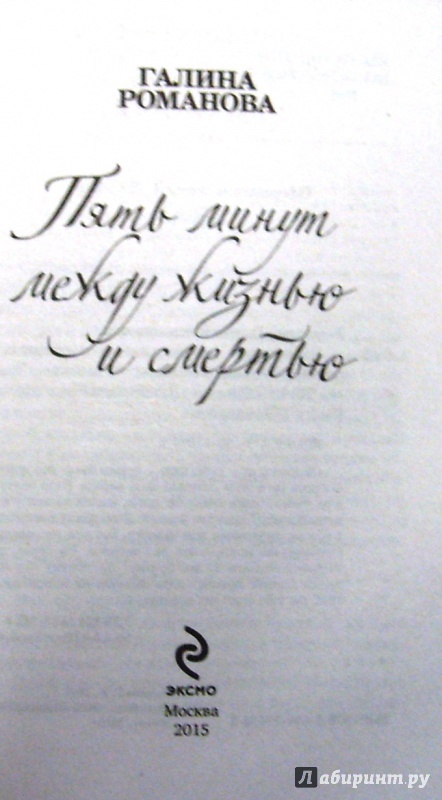 ГАЛИНА
РОМАНОВА
Пять минут
между жизнью
и смертью
ЭКСМО
Москва
2015
Лабиринт.ру